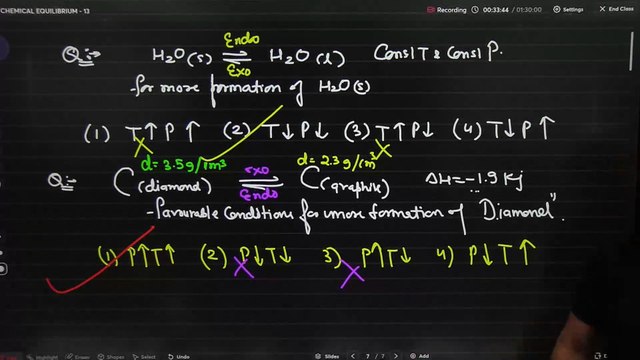 CHEMICAL EQUILIBRIUM - 13
Recording 00:33:44 / 01:30:00 Settings End Class
Q:- H₂O(s) Endo ⇌ Exo H₂O(l) Const T & Const P.
for more formation of H₂O(s)
(1) T↑ P↑ (2) T↓ P↓ (3) T↑ P↓ (4) T↓ P↑
d = 3.5 g/cm³ d = 2.3 g/cm³
Q:- C(diamond) exo ⇌ Endo C(graphite) ΔH = -1.9 kJ
- favourable Conditions for more formation of "Diamond".
(1) P↑ T↑ (2) P↓ T↓ 3) P↑ T↓ 4) P↓ T↑
Highlight Eraser Shapes Select Undo Slides 7 / 7 More